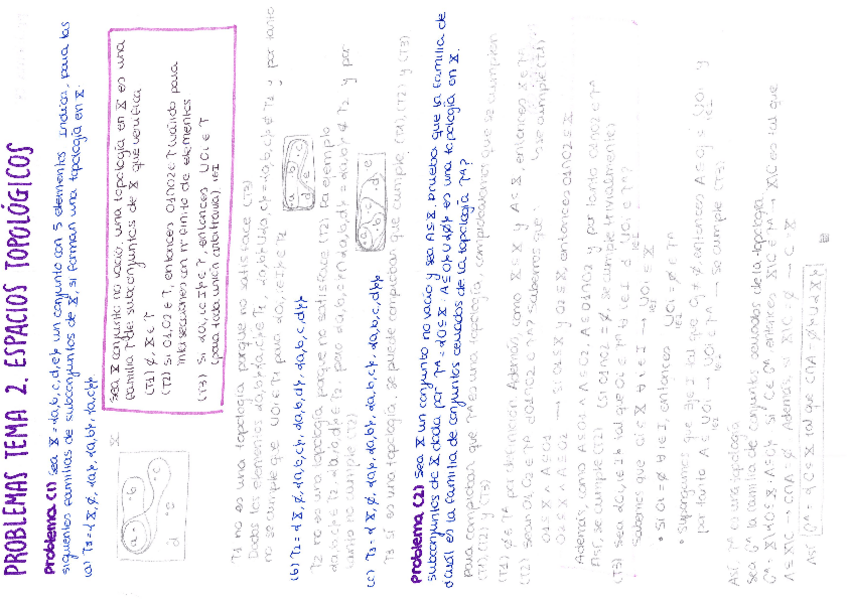 PROBLEMAS TEMA 2. ESPACIOS TOPOLÓGICOS
Problema (1) Sea X={a,b,c,d,e} un conjunto con 5 elementos. Indica, para las
siguientes familias de subconjuntos de X, si forman una topología en X.
(a) T1={X,∅,{a},{a,b},{a,c}}
Sea X conjunto no vacío, una topología en X es una
familia T de subconjuntos de X que verifica
(T1) ∅, X ∈ T
(T2) Si O1,O2 ∈ T, entonces O1∩O2 ∈ T (válido para
intersecciones con nº finito de elementos
(T3) Si {Oi, i∈I} ⊂ T, entonces ∪Oi ∈ T
(para toda unión arbitraria) i∈I
X
a b
c
d e
T1 no es una topología porque no satisface (T3)
Dados los elementos {a,b},{a,c} ∈ T1, {a,b}∪{a,c}={a,b,c} ∉ T1 y por tanto
no se cumple que ∪Oi ∈ T1 para {Oi, i∈I} ⊂ T1
(b) T2={X,∅,{a,b,c},{a,b,d},{a,b,c,d}}
T2 no es una topología porque no satisface (T2). Por ejemplo
{a,b,c} ∈ T2, {a,b,d} ∈ T2, pero {a,b,c}∩{a,b,d}={a,b} ∉ T2 y por
tanto no cumple (T2)
(c) T3={X,∅,{a},{a,b},{a,b,c},{a,b,c,d}}
T3 sí es una topología, se puede comprobar que cumple (T1),(T2) y (T3)
Problema (2) Sea X un conjunto no vacío y sea A⊆X. Prueba que la familia de
subconjuntos de X dada por Tᴬ={O⊆X: A⊆O}∪{∅} es una topología en X.
¿Cuál es la familia de conjuntos cerrados de la topología Tᴬ?
Para comprobar que Tᴬ es una topología, comprobaremos que se cumplen
(T1),(T2) y (T3)
(T1) ∅ ∈ Tᴬ por definición. Además, como X⊆X y A⊆X, entonces X∈Tᴬ
(T2) Sean O1,O2 ∈ Tᴬ ¿O1∩O2 ∈ Tᴬ? Sabemos que:
O1⊆X ∧ A⊆O1 → Si O1⊆X y O2⊆X, entonces O1∩O2⊆X
O2⊆X ∧ A⊆O2
Además, como A⊆O1 ∧ A⊆O2, A⊆O1∩O2 y por tanto O1∩O2 ∈ Tᴬ
Así, se cumple (T2). (Si O1∩O2=∅, se cumple trivialmente)
(T3) Sea {Oi, i∈I} tal que Oi∈Tᴬ ∀i∈I ¿∪Oi∈Tᴬ?
Sabemos que Oi⊆X ∀i∈I → ∪Oi⊆X
• Si Oi=∅ ∀i∈I, entonces ∪Oi=∅∈Tᴬ
• Supongamos que ∃j∈I tal que Oj≠∅, entonces A⊆Oj⊆∪Oi y
por tanto A⊆∪Oi → ∪Oi∈Tᴬ → Se cumple (T3)
Así, Tᴬ es una topología
Sea Cᴬ la familia de conjuntos cerrados de la topología
Así